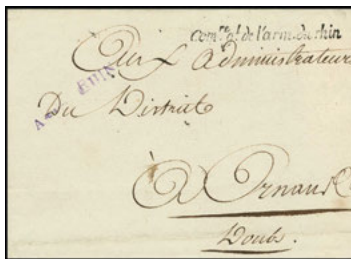 Com.re g.l de l'arm. du rhin
Aux Administrateurs
Du District
À Ornans
Doubs.